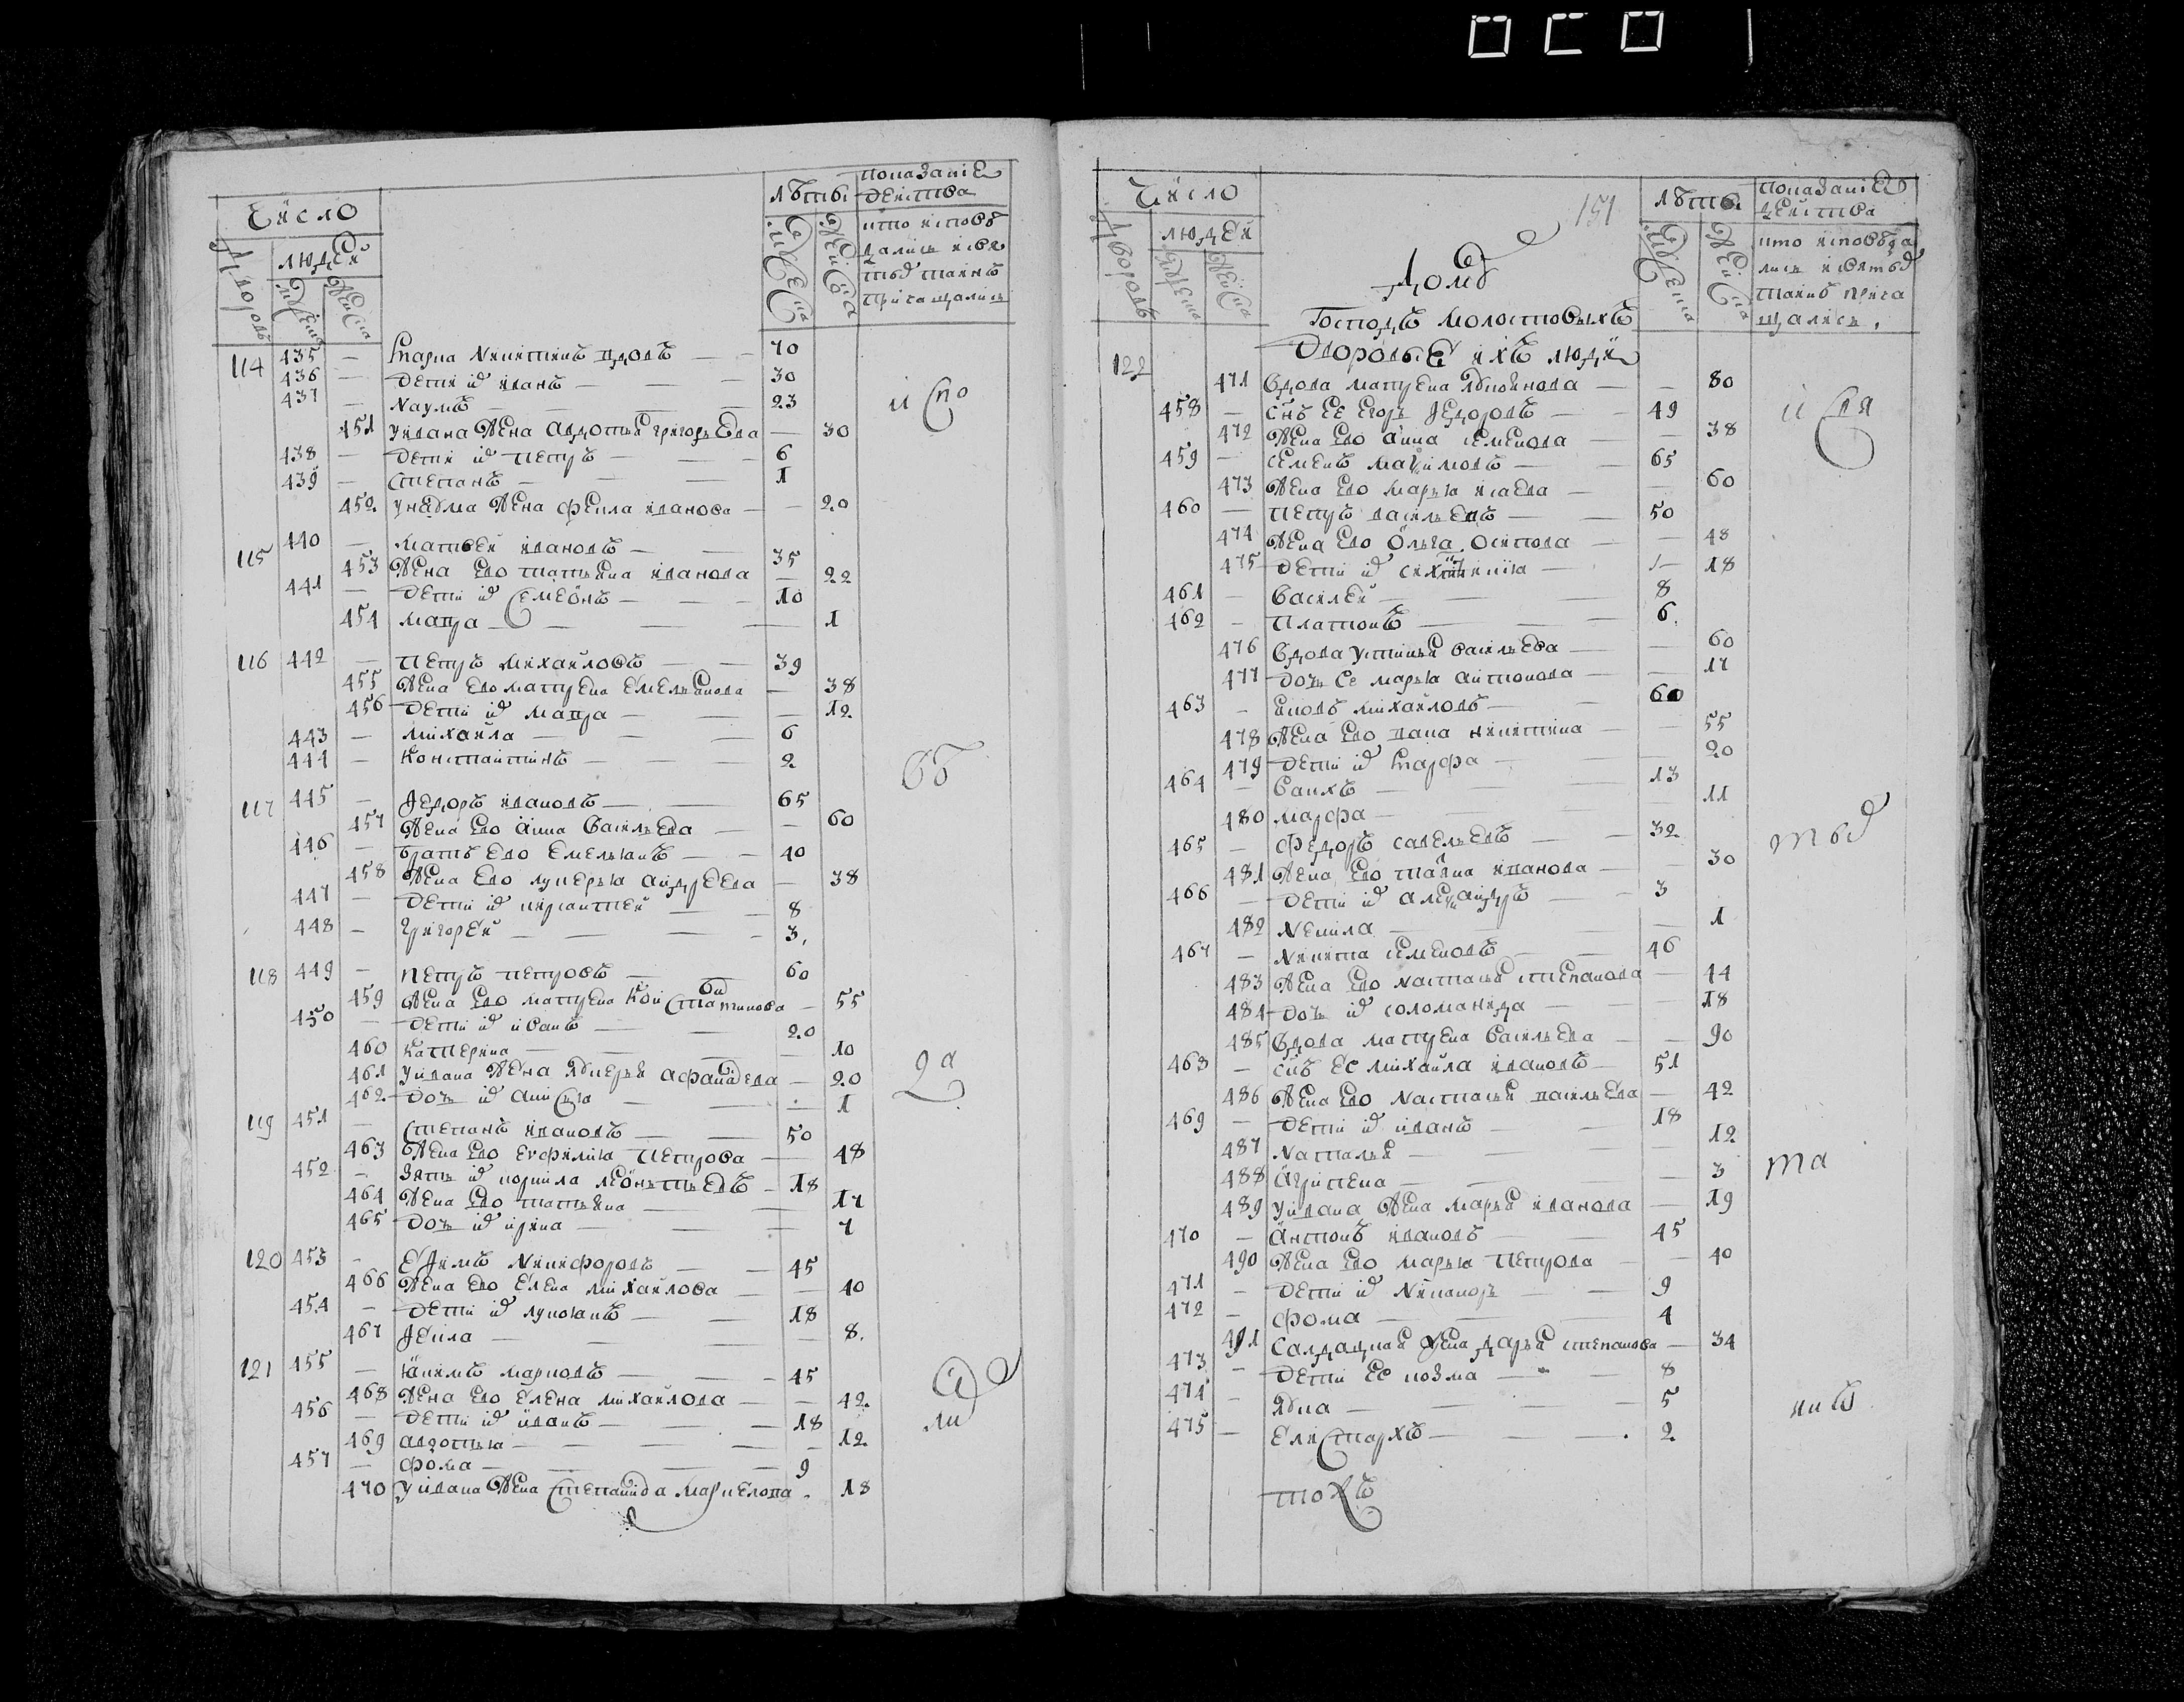 Число
лѣты
показаніе
действа
Дворовъ
людей
мужеска
женска
мужеска
женска
кто исповѣ
дались и свя
тыхъ таинъ
причащались
114 435 — Марка Никитинъ вдовъ — 70
436 — дети ихъ иванъ — 30
437 — Наумъ — 23
451 у ивана жена авдотья григорьева — 30
438 — дети ихъ петръ — 6
439 — степанъ — 1
452 у наума жена фекла иванова — 20
115 440 — матвей ивановъ — 35
453 жена ево татьяна иванова — 22
441 — дети ихъ семенъ — 10
454 мавра — 1
116 442 — петръ михайловъ — 39
455 жена ево матрена емельянова — 38
456 дети ихъ мавра — 12
443 — михайла — 6
444 — константинъ — 2
117 445 — федоръ ивановъ — 65
457 жена ево анна васильева — 60
446 — братъ ево емельянъ — 40
458 жена ево лукерья андреева — 38
447 — дети ихъ киріантей — 8
448 — григорей — 3
118 449 — петръ петровъ — 60
459 жена ево матрена константинова — 55
450 — дети ихъ иванъ — 20
460 катерина — 10
461 у ивана жена афанасева — 20
462 дочь ихъ анисья — 1
119 451 — степанъ ивановъ — 50
463 жена ево евфимія петрова — 48
452 — зять ихъ корнила леонтьевъ — 18
464 жена ево татьяна — 17
465 дочь ихъ ирина — 7
120 453 — ефимъ никифоровъ — 45
466 жена ево елена михайлова — 40
454 — дети ихъ лукьянъ — 18
467 фекла — 8
121 455 — якимъ марковъ — 45
468 жена ево елена михайлова — 42
456 — дети ихъ иванъ — 18
469 авдотья — 12
457 — фома — 9
470 у ивана жена степанида маркелова 18
и спо
вѣ
да
ли
Число
151
лѣты
показаніе
действа
Дворовъ
людей
мужеска
женска
мужеска
женска
кто исповѣда
лись и святыхъ
таинъ прича
щались
Домъ
Господъ Молостовыхъ
Дворовые ихъ люди
122 471 вдова матрена — 80
458 — снъ ее егоръ федоровъ — 49
472 жена ево анна семенова — 38
459 — семенъ максимовъ — 65
473 жена ево марья исаева — 60
460 — петръ васильевъ — 50
474 жена ево ольга осипова — 48
475 дети ихъ — 18
461 — василей — 8
462 — платонъ — 6
476 вдова устинья васильева — 60
477 дочь ее марья антонова — 17
463 — михайловъ — 60
478 жена ево никитина — 55
479 дети ихъ марфа — 20
464 — 13
480 марфа — 11
465 — федоръ савельевъ — 32
481 жена ево иванова — 30
466 — дети ихъ александръ — 3
482 ненила — 1
467 — никита семеновъ — 46
483 жена ево настасья степанова — 44
484 дочь ихъ соломанида — 18
485 вдова матрена васильева — 90
463 — снъ ее михайла ивановъ — 51
486 жена ево настасья васильева — 42
469 — дети ихъ иванъ — 18
487 наталья — 12
488 агрипена — 3
489 у ивана жена марья иванова — 19
470 — антонъ ивановъ — 45
490 жена ево марья петрова — 40
471 — дети ихъ никаноръ — 9
472 — фома — 4
491 салдацкая жена дарья степанова — 34
473 — дети ее козма — 8
474 — яковъ — 5
475 — елистархъ — 2
и свя
тыхъ
та
инъ
тохъ